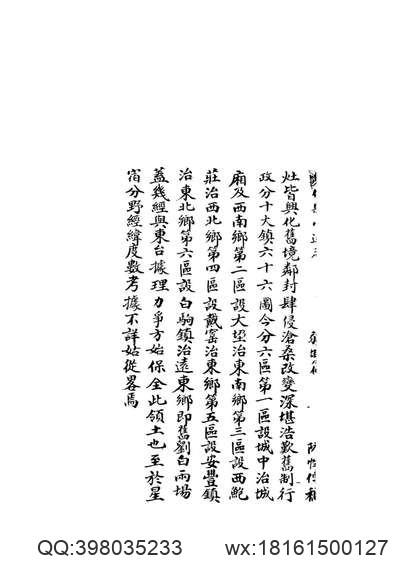 灶皆興化舊境鄰封肆侵滄桑改變深堪浩歎舊制行
政分十大鎮六十六圖今分六區第一區設城中治城
廂及西南鄉第二區設大垈治東南鄉第三區設西鮑
莊治西北鄉第四區設戴窑治東鄉第五區設安豐鎮
治東北鄉第六區設白駒鎮治遠東鄉即舊劉白兩場
蓋幾經與東台據理力爭方始保全此領土也至於星
宿分野經緯度數考據不詳姑從畧焉
QQ:398035233 wx:18161500127